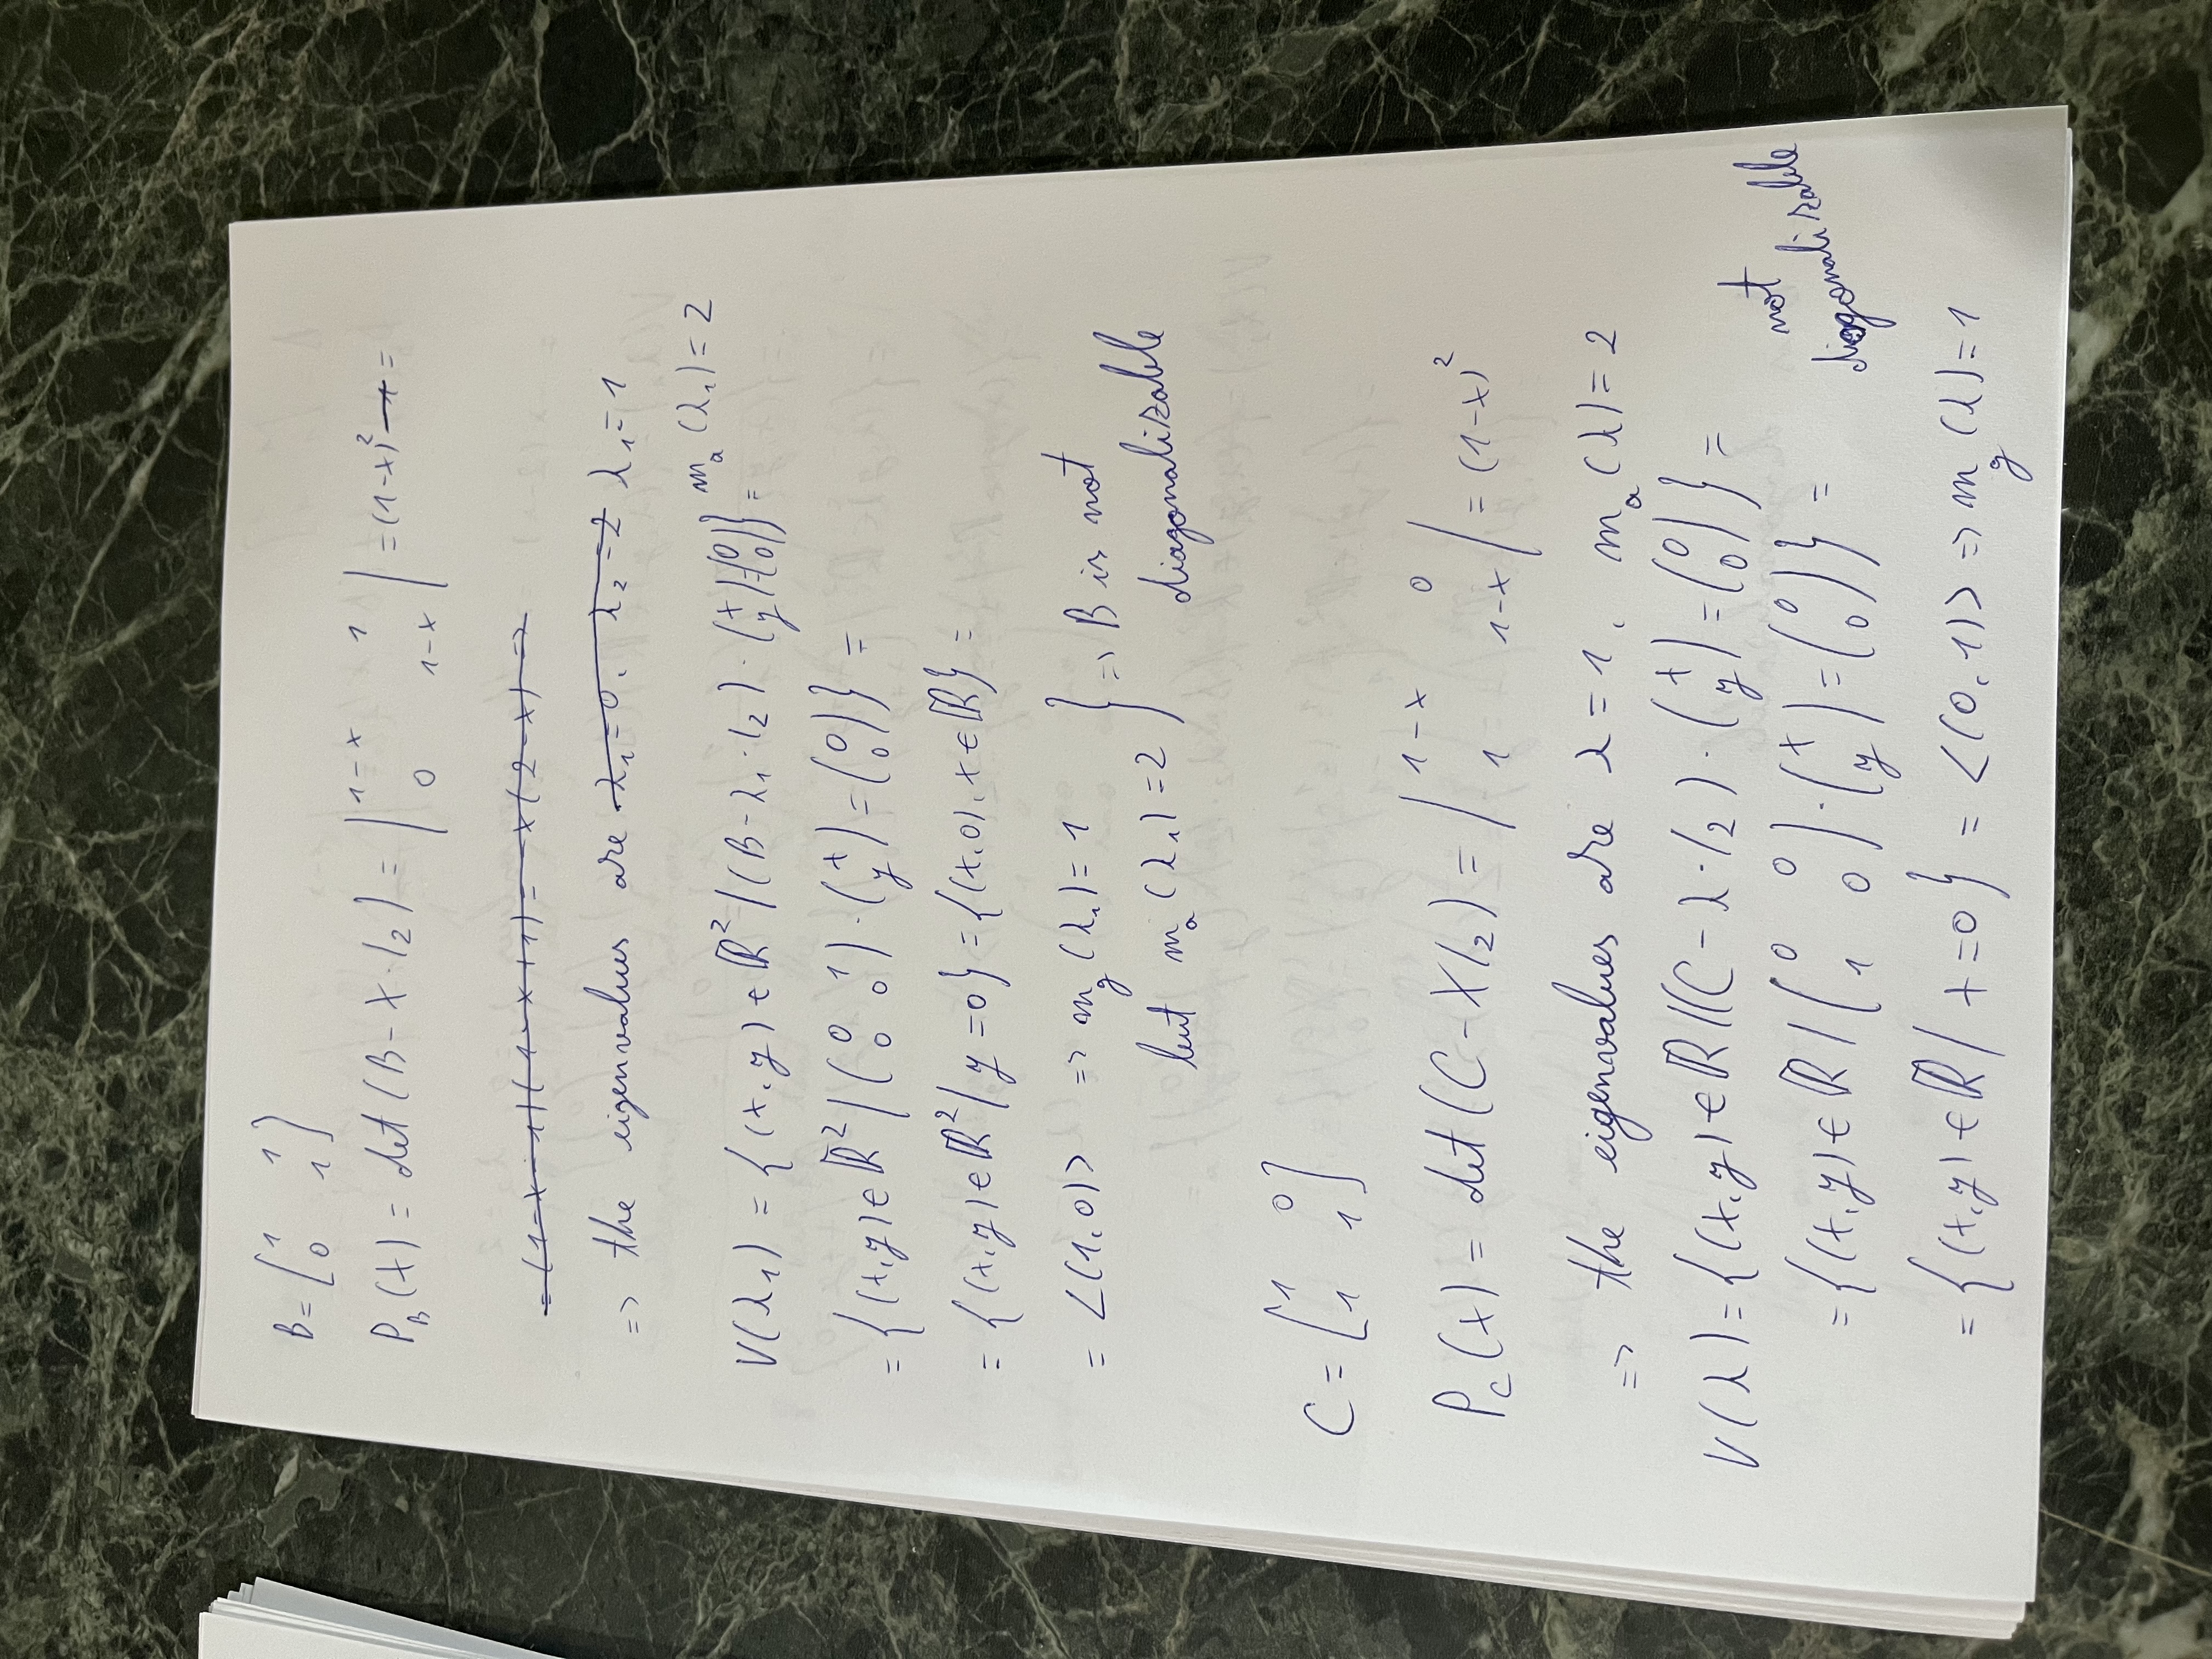 B = [1 1
0 1]
P_B(X) = det (B - X · I_2) = | 1-x 1
0 1-x | = (1-x)^2 - 1 =
= (1-x-1)(1-x+1) = -x(2-x) =>
=> the eigenvalues are λ_1=0, λ_2=2 λ_1=1
m_a(λ_1) = 2
V(λ_1) = {(x,y) ∈ ℝ^2 / (B - λ_1 · I_2) · (x y) = (0 0)} =
= {(x,y) ∈ ℝ^2 / (0 1
0 0) · (x y) = (0 0)} =
= {(x,y) ∈ ℝ^2 / y = 0} = {(x,0), x ∈ ℝ} =
= <(1,0)> => m_g(λ_1) = 1 } => B is not
but m_a(λ_1) = 2 diagonalizable
C = [1 0
1 1]
P_C(X) = det (C - X I_2) = | 1-x 0
1 1-x | = (1-x)^2
=> the eigenvalues are λ = 1, m_a(λ) = 2
V(λ) = {(x,y) ∈ ℝ / (C - λ · I_2) · (x y) = (0 0)} =
= {(x,y) ∈ ℝ / (0 0
1 0) · (x y) = (0 0)} =
not
diagonalizable
= {(x,y) ∈ ℝ / x = 0} = <(0,1)> => m_g(λ) = 1